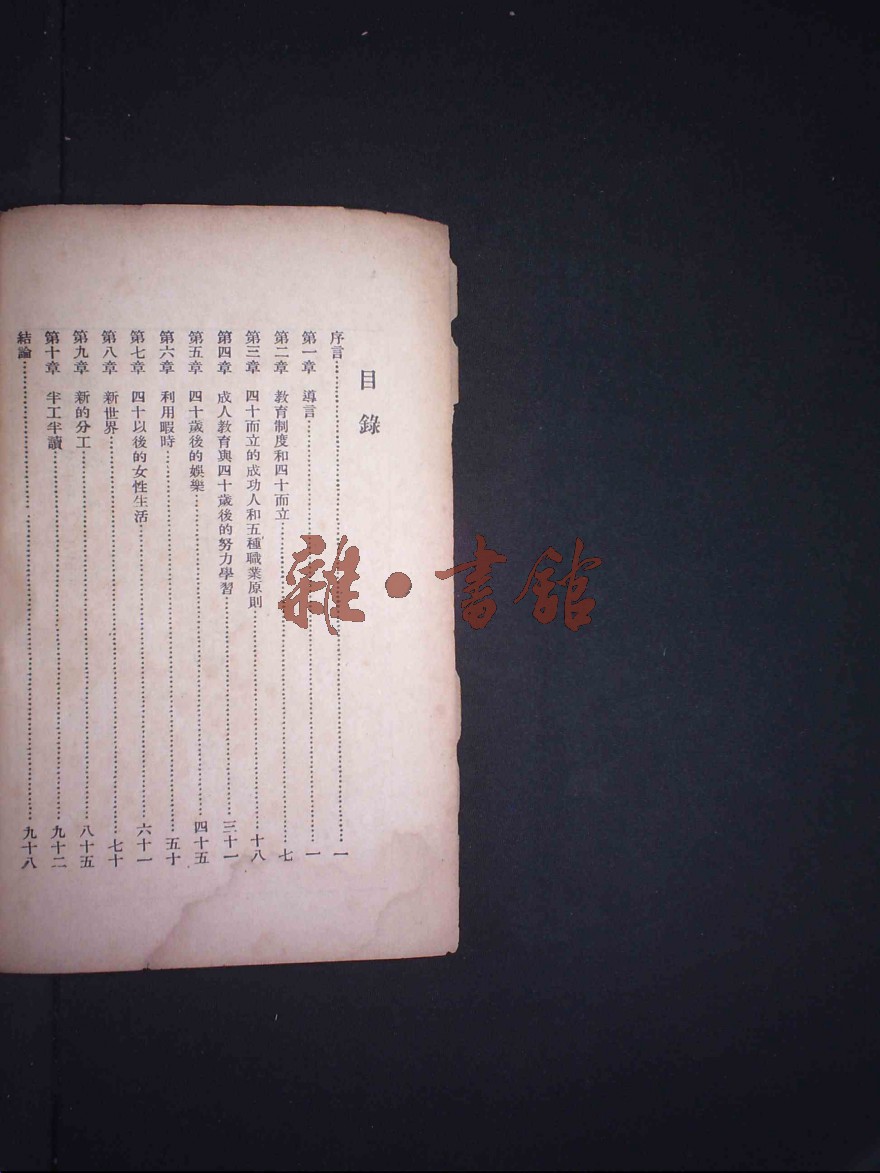 目錄
序言……一
第一章 導言……一
第二章 教育制度和四十而立……七
第三章 四十而立的成功人和五種職業原則……十八
第四章 成人教育與四十歲後的努力學習……三十一
第五章 四十歲後的娛樂……四十五
第六章 利用暇時……五十
第七章 四十以後的女性生活……六十一
第八章 新世界……七十
第九章 新的分工……八十五
第十章 半工半讀……九十二
結論……九十八
雜·書館